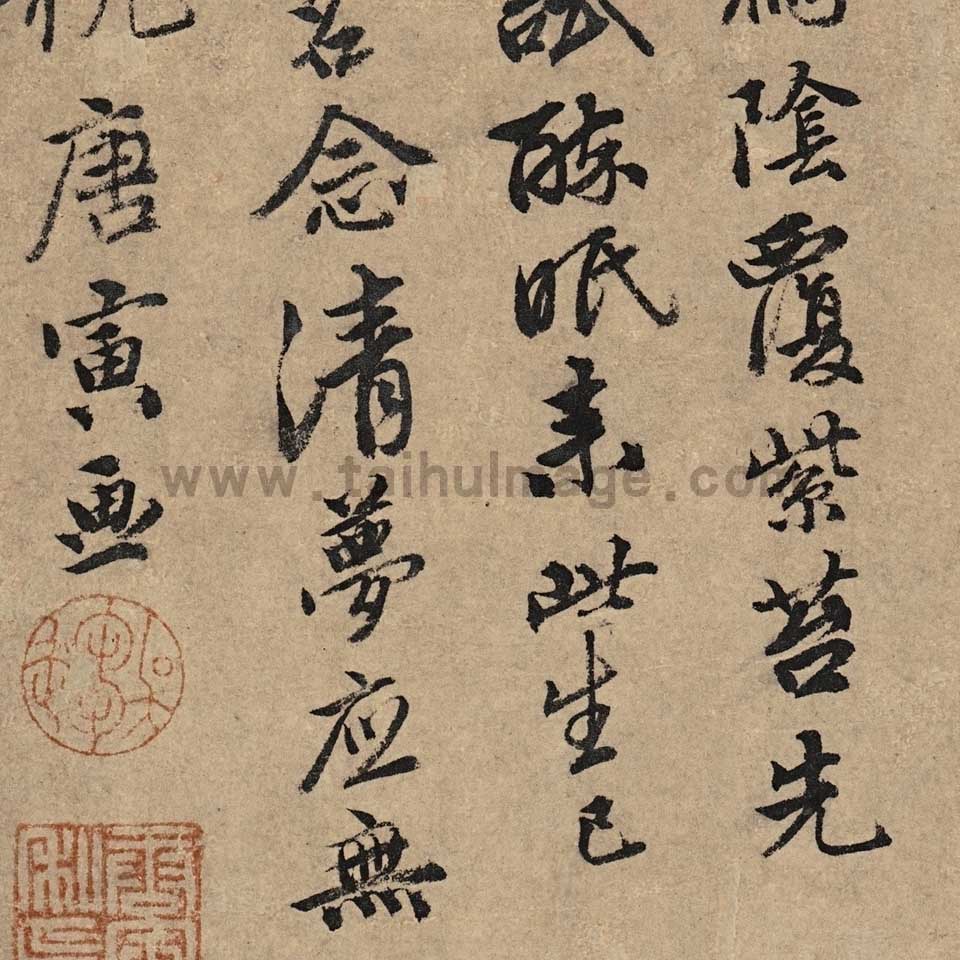 陰覆紫苔先
試醉眠来此生已
名念清夢应無
槐唐寅画
www.taihuImage.com